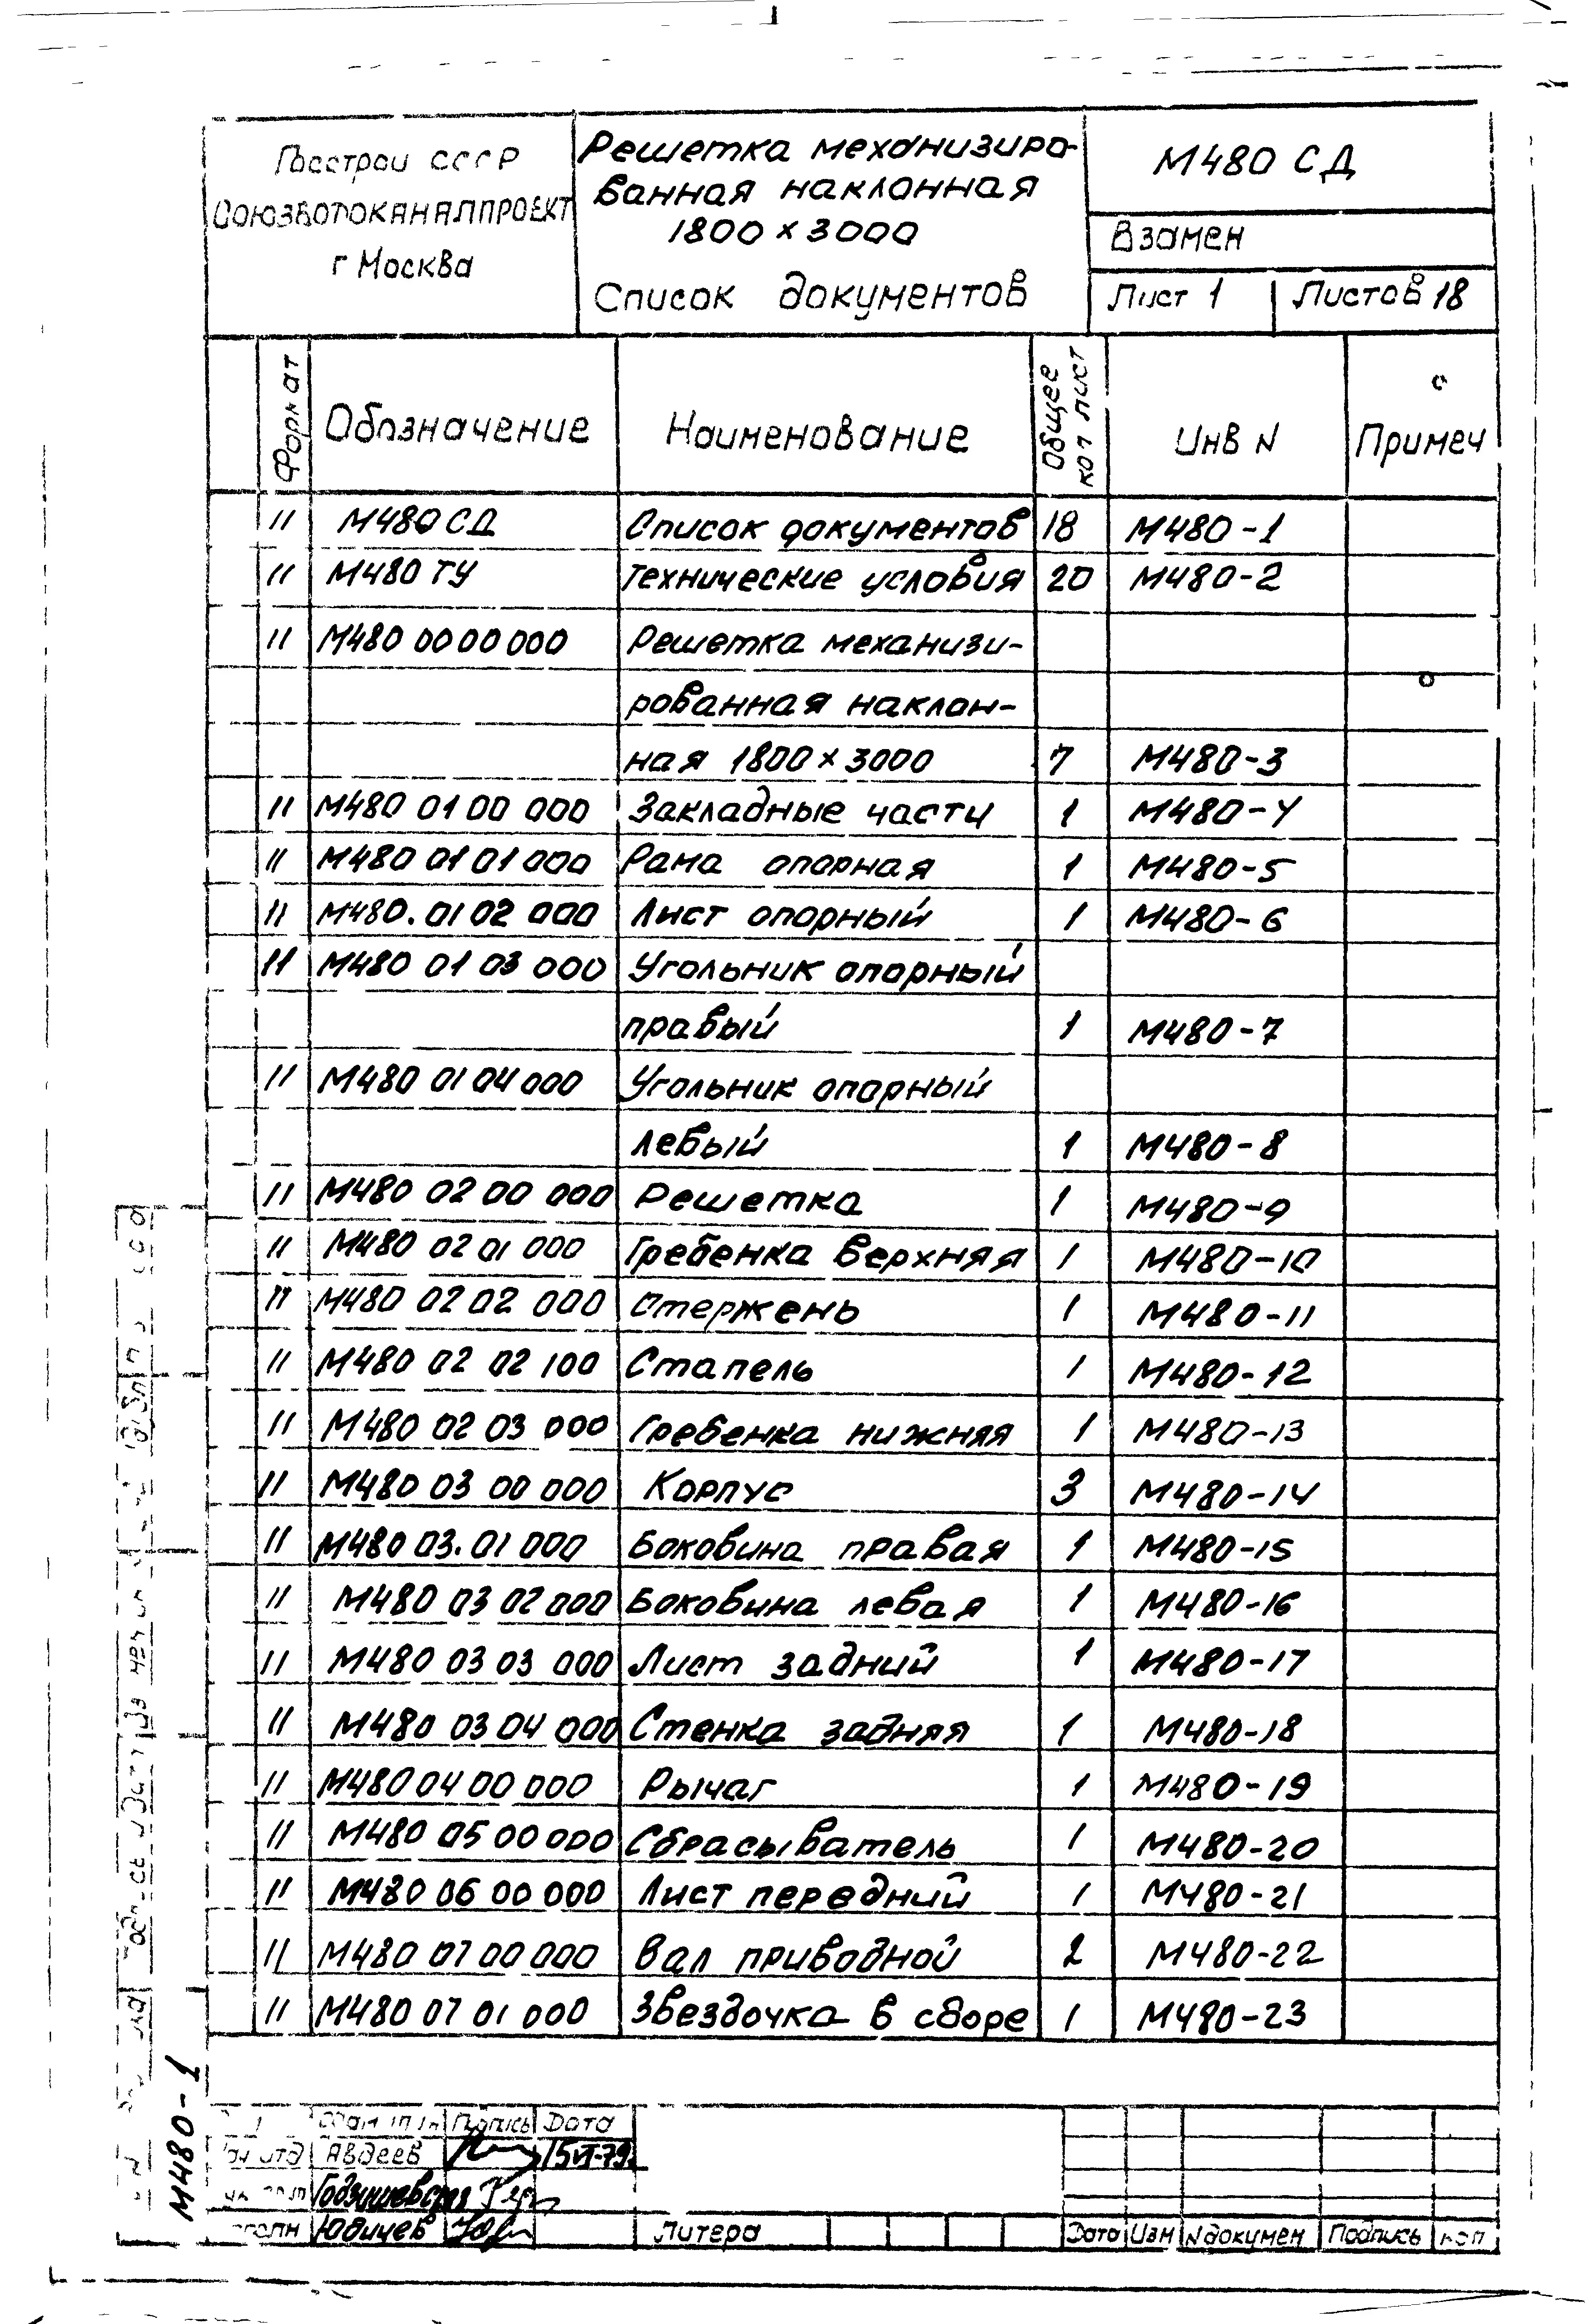 Госстрой СССР
СОЮЗВОДОКАНАЛПРОЕКТ
г Москва
Решетка механизиро-
ванная наклонная
1800 х 3000
Список документов
М480 СД
Взамен
Лист 1 Листов 18
Формат Обозначение Наименование Общее кол лист Инв N Примеч
11 М480 СД Список документов 18 М480-1
11 М480 ТУ Технические условия 20 М480-2
11 М480 00 00 000 Решетка механизи-
рованная наклон-
ная 1800 х 3000 7 М480-3
11 М480 01 00 000 Закладные части 1 М480-4
11 М480 01 01 000 Рама опорная 1 М480-5
11 М480.01 02 000 Лист опорный 1 М480-6
11 М480 01 03 000 Угольник опорный
правый 1 М480-7
11 М480 01 04 000 Угольник опорный
левый 1 М480-8
11 М480 02 00 000 Решетка 1 М480-9
11 М480 02 01 000 Гребенка верхняя 1 М480-10
11 М480 02 02 000 Стержень 1 М480-11
11 М480 02 02 100 Стапель 1 М480-12
11 М480 02 03 000 Гребенка нижняя 1 М480-13
11 М480 03 00 000 Корпус 3 М480-14
11 М480 03.01 000 Боковина правая 1 М480-15
11 М480 03 02 000 Боковина левая 1 М480-16
11 М480 03 03 000 Лист задний 1 М480-17
11 М480 03 04 000 Стенка задняя 1 М480-18
11 М480 04 00 000 Рычаг 1 М480-19
11 М480 05 00 000 Сбрасыватель 1 М480-20
11 М480 06 00 000 Лист передний 1 М480-21
11 М480 07 00 000 Вал приводной 2 М480-22
11 М480 07 01 000 Звездочка в сборе 1 М480-23
М480-1
Подпись Дата
отд Авдеев 15.VI-79
Юдичев
Литера Дата Изм N докумен Подпись